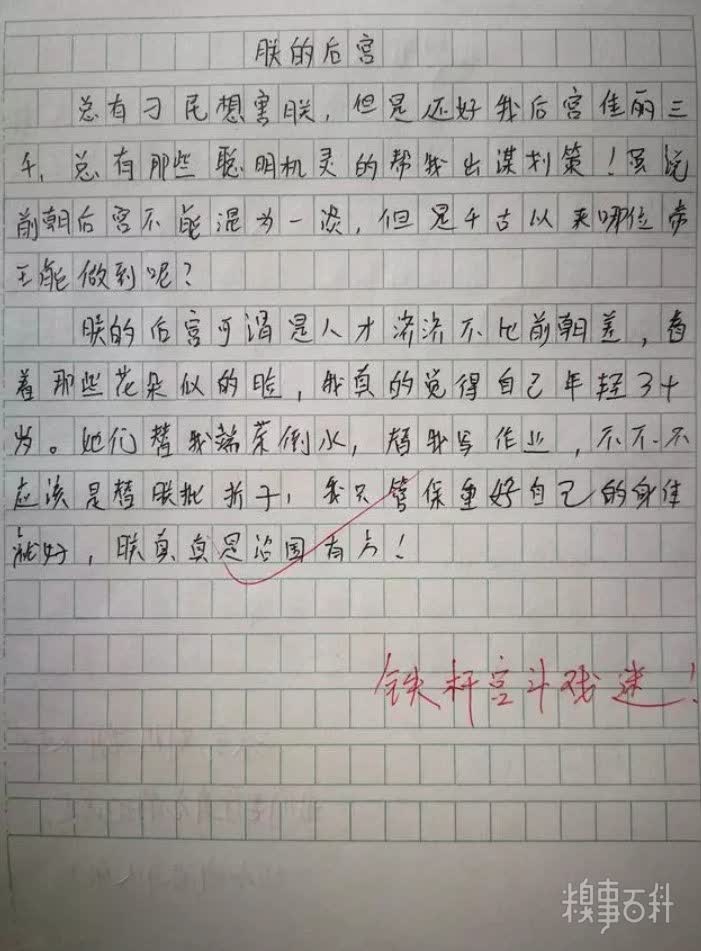 朕的后宫
总有刁民想害朕，但是还好我后宫佳丽三
千，总有那些聪明机灵的帮我出谋划策！虽说
前朝后宫不能混为一谈，但是千古以来哪位帝
王能做到呢？
朕的后宫可谓是人才济济不比前朝差，看
着那些花朵似的脸，我真的觉得自己年轻34
岁。她们替我端茶倒水，替我写作业，不不不
应该是替朕批折子，我只管保重好自己的身体
就好，朕真真是治国有方！
铁杆宫斗戏迷！
糗事百科